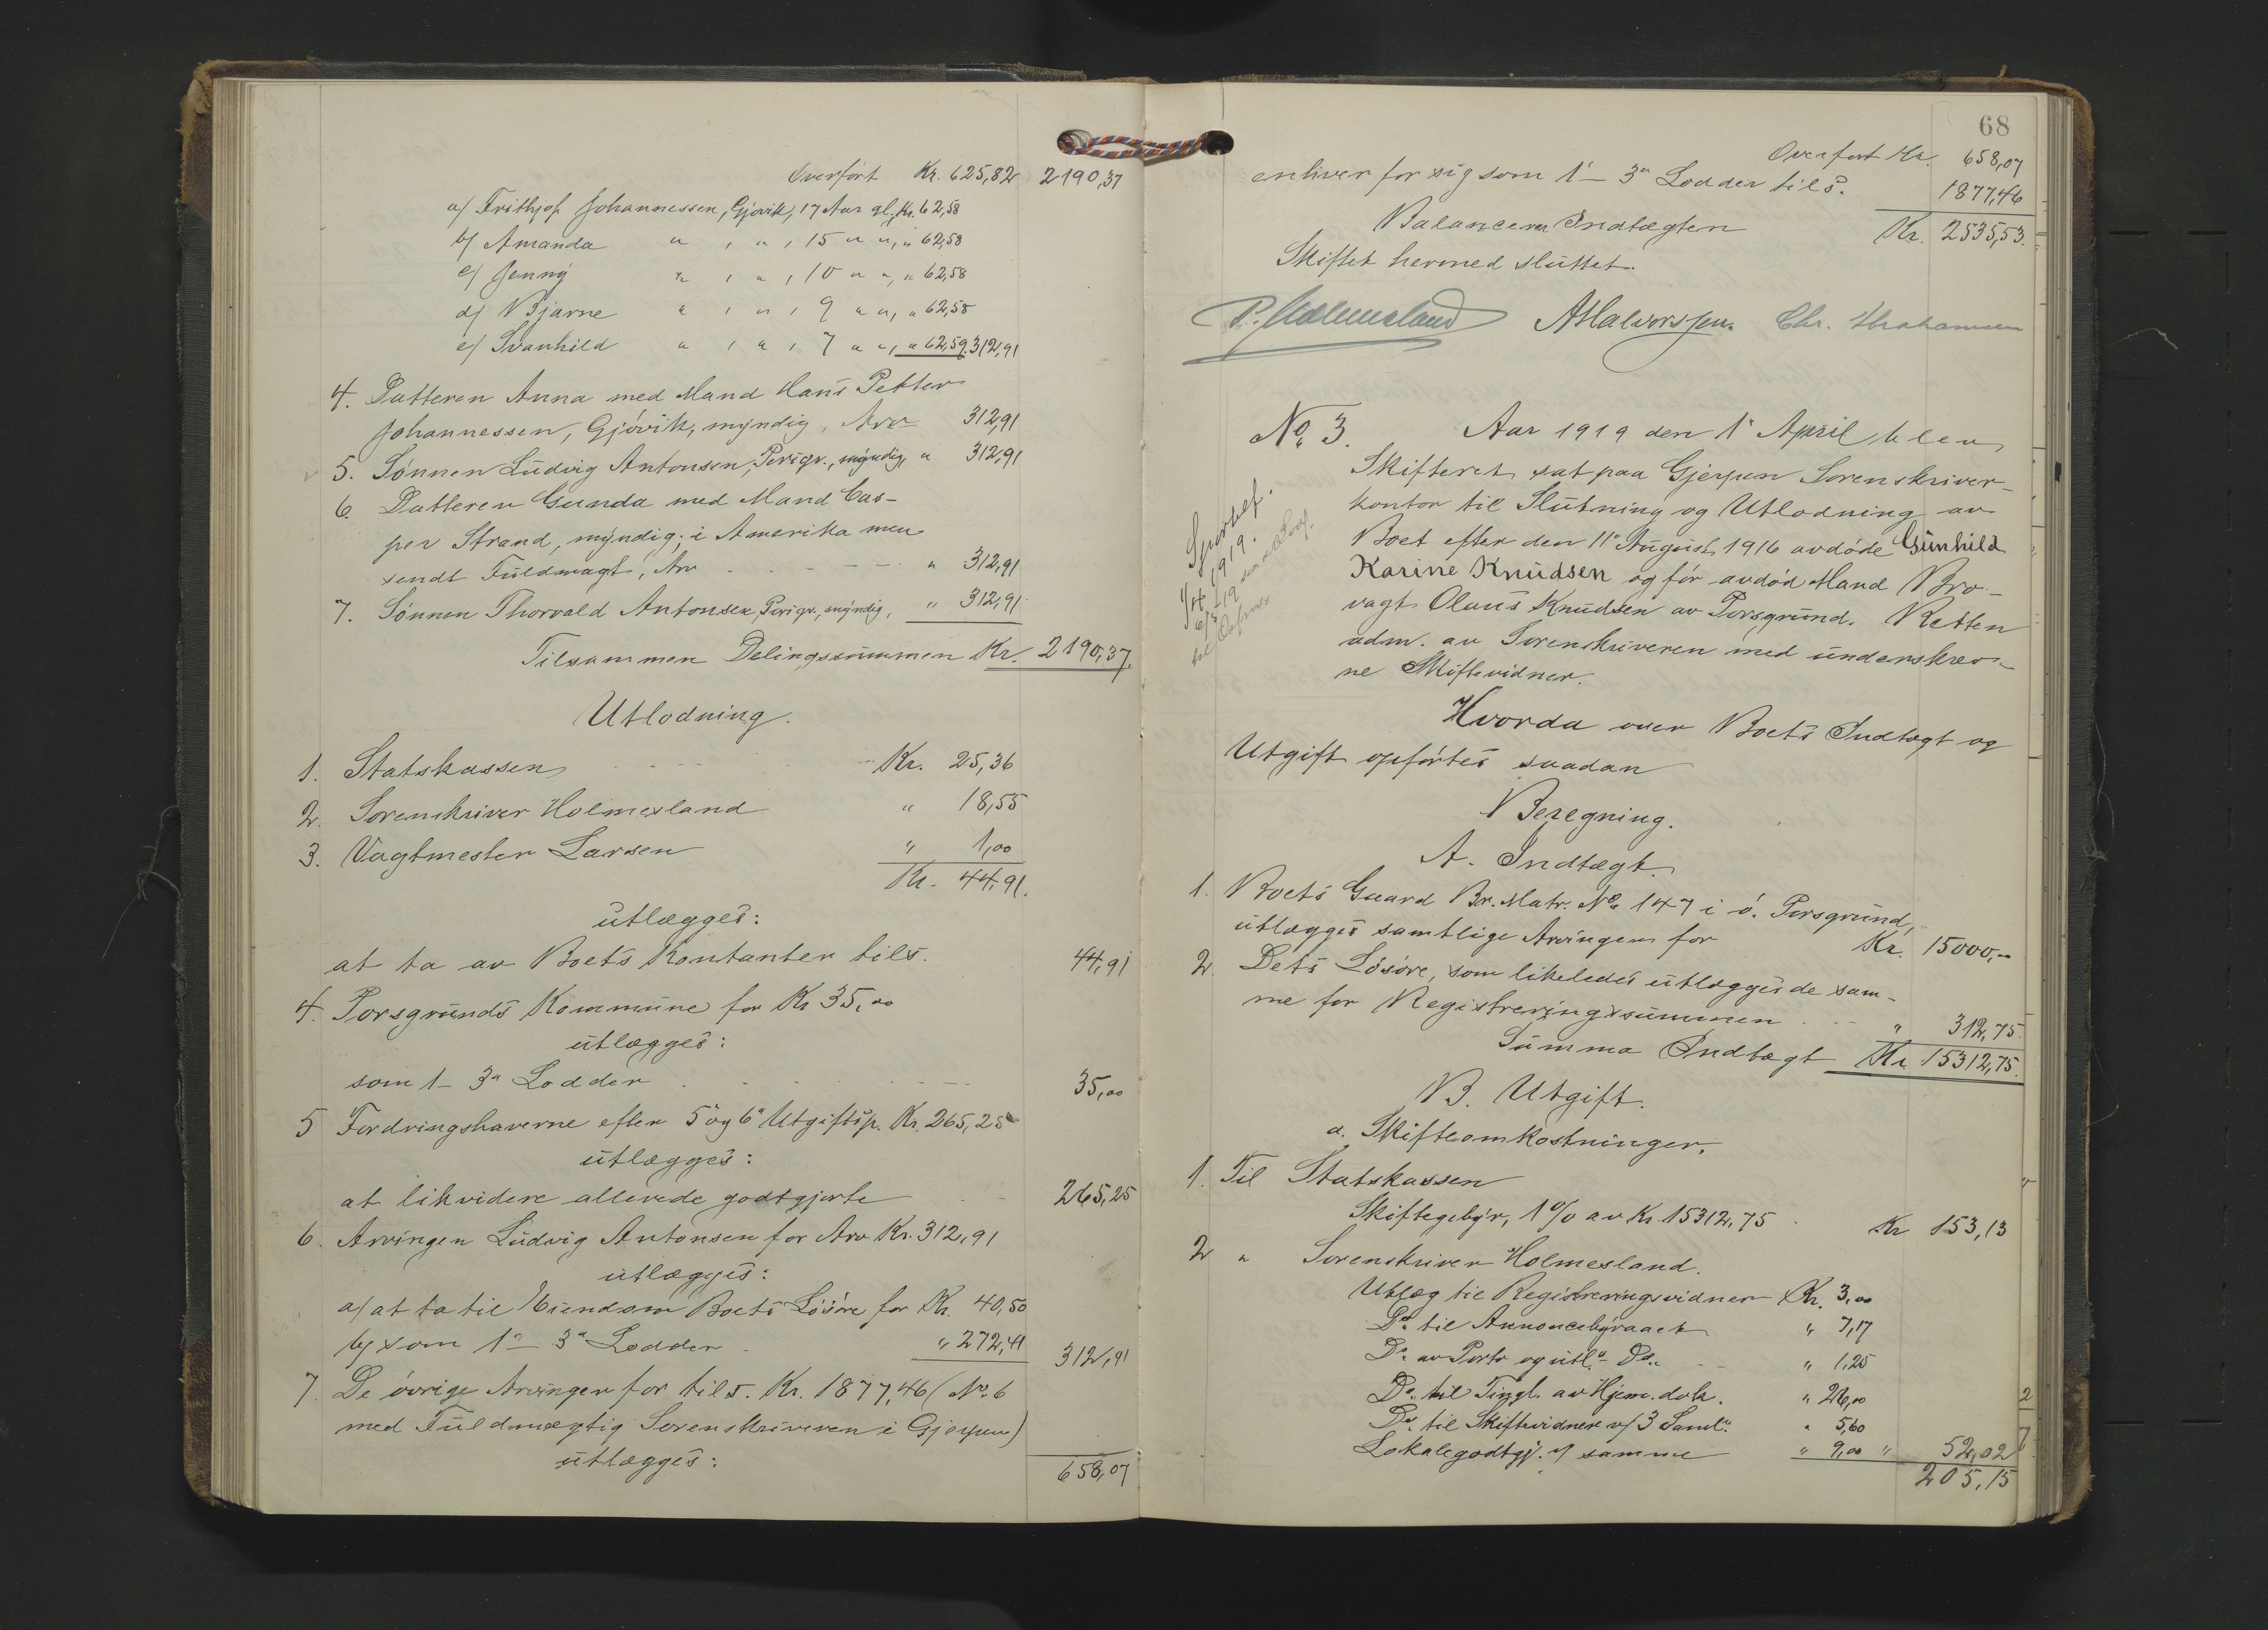 Overført Kr. 625,82 2190,37
a/ Frithjof Johannessen, Gjøvik, 17 Aar gl. Kr. 62,58
b/ Amanda " , " , 15 " " , " 62,58
c/ Jenny " , " , 10 " " , " 62,58
d/ Bjarne " , " , 9 " " , " 62,58
e/ Svanhild " , " , 7 " " , " 62,59. 312,91
4. Datteren Anna med Mand Hans Petter
Johannessen, Gjøvik, myndig, Arv 312,91
5. Sønnen Ludvig Antonsen, Porsgr., myndig, " 312,91
6. Datteren Gunda med Mand Cas-
per Strand, myndig; i Amerika men
sendt Fuldmagt, Arv " 312,91
7. Sønnen Thorvald Antonsen, Porsgr., myndig, " 312,91
Tilsammen Delingssummen Kr. 2190,37.
Utlodning.
1. Statskassen Kr. 25,36
2. Sorenskriver Holmesland " 18,55
3. Vagtmester Larsen " 1,00
Kr. 44,91.
utlægges:
at ta av Boets Kontanter tils. 44,91
4. Porsgrunds Kommune for Kr 35,00
utlægges:
som 1- 3a Lodder 35,00
5 Fordringshaverne efter 5 og 6" Utgiftsp. Kr. 265,25
utlægges:
at likvidere allerede godtgjorte 265,25
6. Arvingen Ludvig Antonsen for Arv Kr. 312,91
utlægges:
a/ at ta til Eiendom Boets Løsøre for Kr. 40,50
b/ som 1a- 3a Lodder " 272,41 312,91
7 De øvrige Arvinger for tils. Kr. 1877,46 (No. 6
med Fuldmægtig Sorenskriveren i Gjerpen)
utlægges:
658,07
68
Overført Kr. 658,07
enhver for sig som 1- 3a Lodder tils. 1877,46
Balancerer Indtægten Kr. 2535,53.
Skiftet hermed sluttet.
P. Holmesland A Halvorssen. Chr. Abrahamsen
No. 3. Aar 1919 den 1' April blev
Skifteret sat paa Gjerpen Sorenskriver-
kontor til Slutning og Utlodning av
Boet efter den 11' August 1916 avdøde Gunhild
Karine Knudsen og før avdød Mand Bro-
vagt Olaus Knudsen av Porsgrund. Retten
adm. av Sorenskriveren med underskrev-
ne Skiftevidner.
Hvorda over Boets Indtægt og
Utgift opførtes saadan
Beregning.
A. Indtægt.
1. Boets Gaard Br. Matr. No. 147 i ø. Porsgrund,
utlægges samtlige Arvinger for Kr. 15000,-
2. Dets Løsøre, som likeledes utlægges de sam-
me for Registreringssummen " 312,75.
Summa Indtægt Kr. 15312,75.
B. Utgift.
a. Skifteomkostninger.
1. Til Statskassen
Skiftegebyr, 1% av Kr. 15312,75 Kr 153,13
2 " Sorenskriver Holmesland.
Utlæg til Registreringsvidner Kr. 3,00
Do. til Annoncebyraaet " 7,17
Do. av Porto og utl. Do. " 1,25
Do. til Tingl. av Hjem. dok. " 26,00
Do. til Skiftevidnere v/ 3 Saml. " 5,60
Lokalegodtgj. v/ samme " 9,00 " 52,02
205,15